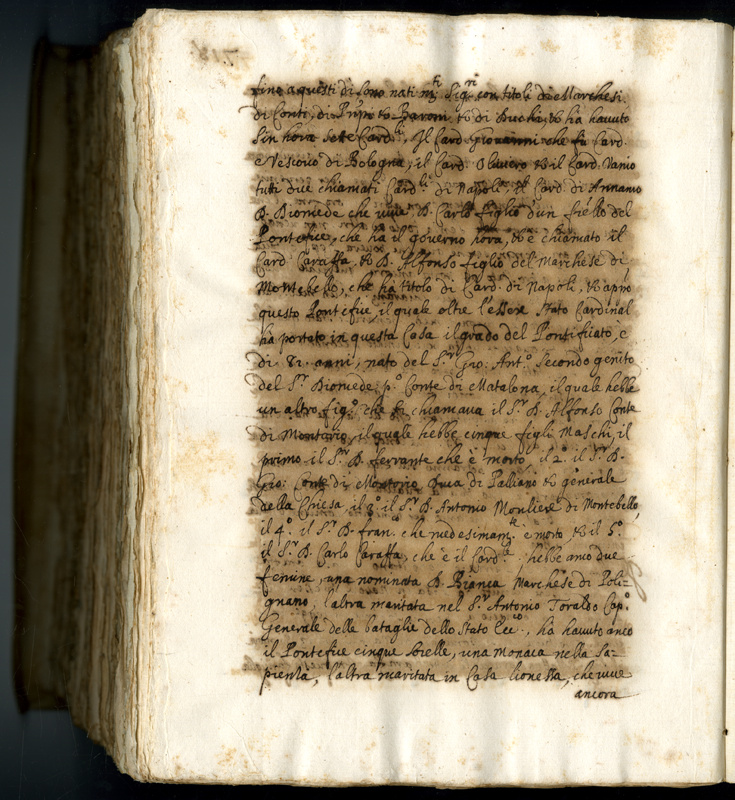 fino a questi dì sono nati m.ti Sig.ri con titoli di Marchesi
di Conti, di Prīpi et Baroni et di Duchi, et ha hauuto
sin hora sette Card.li, Il Card. Giouanni che fù Card.
e Vescouo di Bologna, il Card. Oliuero et il Card.
tutti due chiamati Card.li di Napoli, il Card. di
D. Diomede che viue D. Carlo figlio d'un fr̄ello del
Pontefice, che hà il gouerno hora, et è chiamato il
Card. Caraffa, et D. Alfonso figlio del Marchese di
Montebello, che ha titolo di Card. di Napoli, et
questo Pontefice, il quale oltre l'essere stato Cardinal
ha portato in questa Casa il grado del Pontificato, e
di 81. anni, nato del S.r Gio: Ant.o secondo genito
del S.r Diomede p.o Conte di Matalona, il quale hebbe
un altro fig.o che si chiamaua il S.r D. Alfonso Conte
di Montorio, il quale hebbe cinque figli Maschi, il
primo il S.r D. ferrante che è morto, il 2.o il S.r D.
Gio: Conte di Montorio Duca di Paliano et generale
della Chiesa, il 3.o il S.r D. Antonio di Montebello,
il 4.o il S.r D. fran.o che medesimam.te è morto et il 5.o
il S.r D. Carlo Caraffa, che è il Card.le hebbe anco due
femine, una nominata D. Bianca Marchese di Poli=
gnano, l'altra maritata nel S.r Antonio Toraldo Cap.o
Generale delle bataglie dello Stato Ecc.o, ha hauuto anco
il Pontefice cinque sorelle, una Monaca nella Sa-
pienza, l'altra maritata in Casa lionessa, che viue
ancora